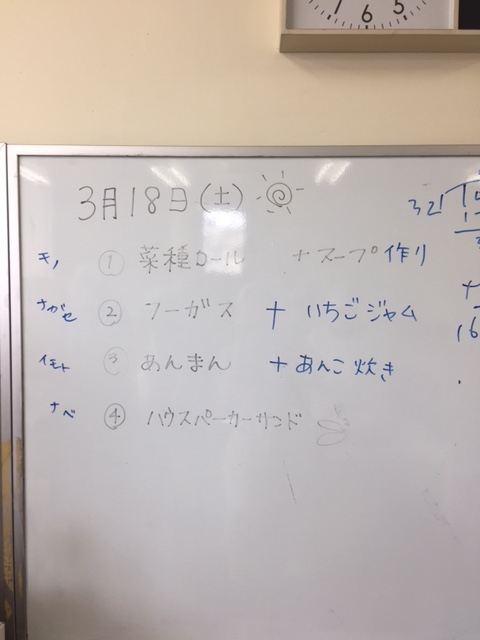 7 6 5
3月18日(土)
キノ ① 菜種ロール +スープ作り
ナガセ ② フーガス + いちごジャム
イモト ③ あんまん +あんこ炊き
ナベ ④ ハウスパーカーサンド
321
16